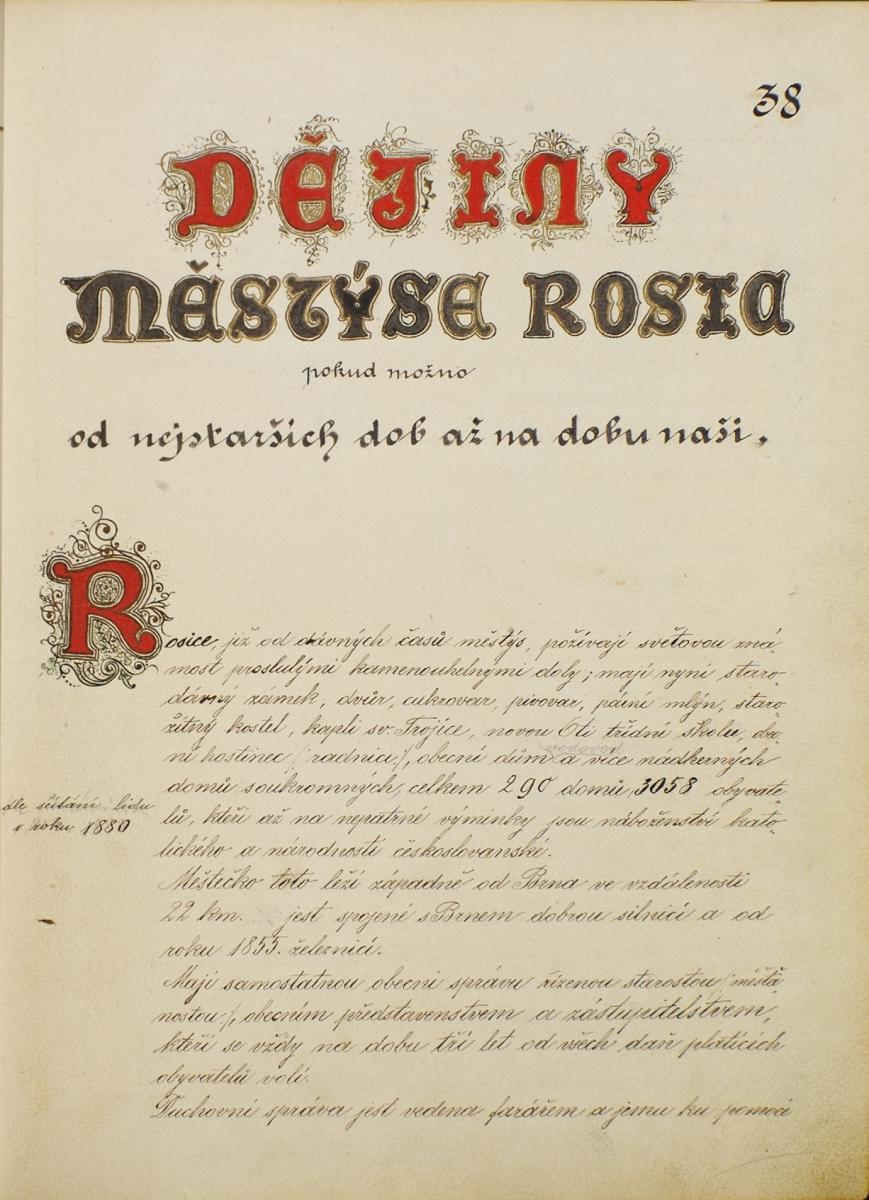 38
DĚJINY
MĚSTÝSE ROSIC
pokud možno
od nejstarších dob až na dobu naši.
Rosice, již od dávných časů městýs, požívají světovou zná-
most proslulými kamenouhelnými doly; mají nyní staro-
dávný zámek, dvůr, cukrovar, pivovar, pární mlýn, staro-
žitný kostel, kapli sv. Trojice, novou 6ti třídní školu, obec-
ní hostinec (:radnici:), obecní dům a více nádherných
vodovod
domů soukromných, celkem 290 domů, 3058 obyvate-
dle sčítání lidu
v roku 1880
lů, kteří až na nepatrné výminky jsou náboženství kato-
lického a národnosti československé.
Městečko toto leží západně od Brna ve vzdálenosti
22 km. jest spojené s Brnem dobrou silnicí a od
roku 1855. železnicí.
Mají samostatnou obecní správu řízenou starostou (:měšťa-
nostou:), obecním představenstvem a zástupitelstvem,
kteří se vždy na dobu tří let od všech daň platících
obyvatelů volí.
Duchovní správa jest vedena farářem a jemu ku pomoci